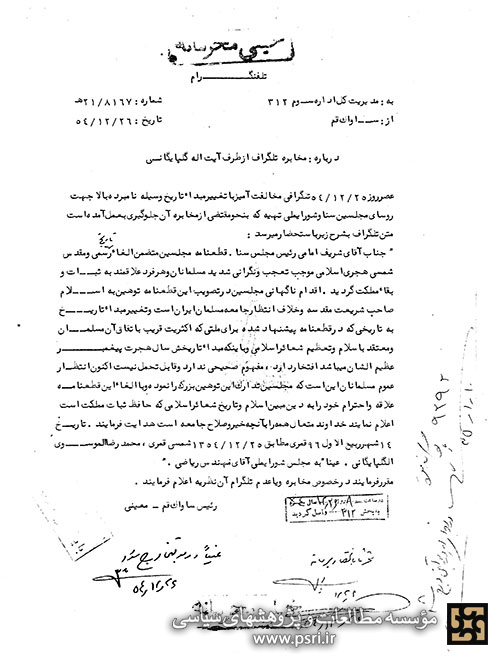 خیلی محرمانه
تلفنگرام
به: مدیریت کل اداره سوم ۳۱۲
شماره: ۲۱/۸۱۶۷هـ
از: ساواک قم
تاریخ: ۵۴/۱۲/۲۶
درباره: مخابره تلگراف از طرف آیت اله گلپایگانی
عصر روز ۵۴/۱۲/۲۵ تلگرافی مخالفت آمیز با تغییر مبداء تاریخ وسیله نامبرده بالا جهت
روسای مجلسین سنا و شورایملی تهیه که بنحو مقتضی از مخابره آن جلوگیری بعمل آمده است
متن تلگراف بشرح زیر باستحضار میرسد:
تاریخ
" جناب آقای شریف امامی رئیس مجلس سنا. قطعنامه مجلسین متضمن الغاء رسمی و مقدس
شمسی هجری اسلامی موجب تعجب و نگرانی شدید مسلمانان و هر فرد علاقمند به ثبات و
بقاء مملکت گردید. اقدام ناگهانی مجلسین در تصویب این قطعنامه توهین به اسلام
صاحب شریعت مقدسه و خلاف انتظار جامعه مسلمان ایران است و تغییر مبداء تاریخ
به تاریخی که در قطعنامه پیشنهاد شده برای ملتی که اکثریت قریب باتفاق آن مسلمان
و معتقد باسلام و تعظیم شعائر اسلامی و باینکه مبداء تاریخش سال هجرت پیغمبر
عظیم الشان میباشد افتخار دارد، مفهوم صحیحی ندارد و قابل تحمل نیست اکنون انتظار
عموم مسلمانان این است که مجلسین تدارک این توهین بزرگ را نموده و با الغاء این قطعنامه
علاقه و احترام خود را به دین مبین اسلام و تاریخ شعائر اسلامی که حافظ ثبات مملکت است
اعلام نمایند خداوند متعال همه را بآنچه خیر و صلاح جامعه است هدایت فرمایند. تاریخ
۱۴ شهر ربیع الاول ۹۶ قمری مطابق ۱۳۵۴/۱۲/۲۵ شمسی قمری، محمد رضا الموسوی
الگلپایگانی. عینا" به مجلس شورایملی آقای مهندس ریاضی."
مقرر فرمایند در خصوص مخابره و یا عدم تلگرام آن نظریه اعلام فرمایند.
رئیس ساواک قم - معینی
به بخش ۳۱۲ واصل گردید
۹۲۹۲
مؤسسه مطالعات و پژوهشهای سیاسی
www.psri.ir